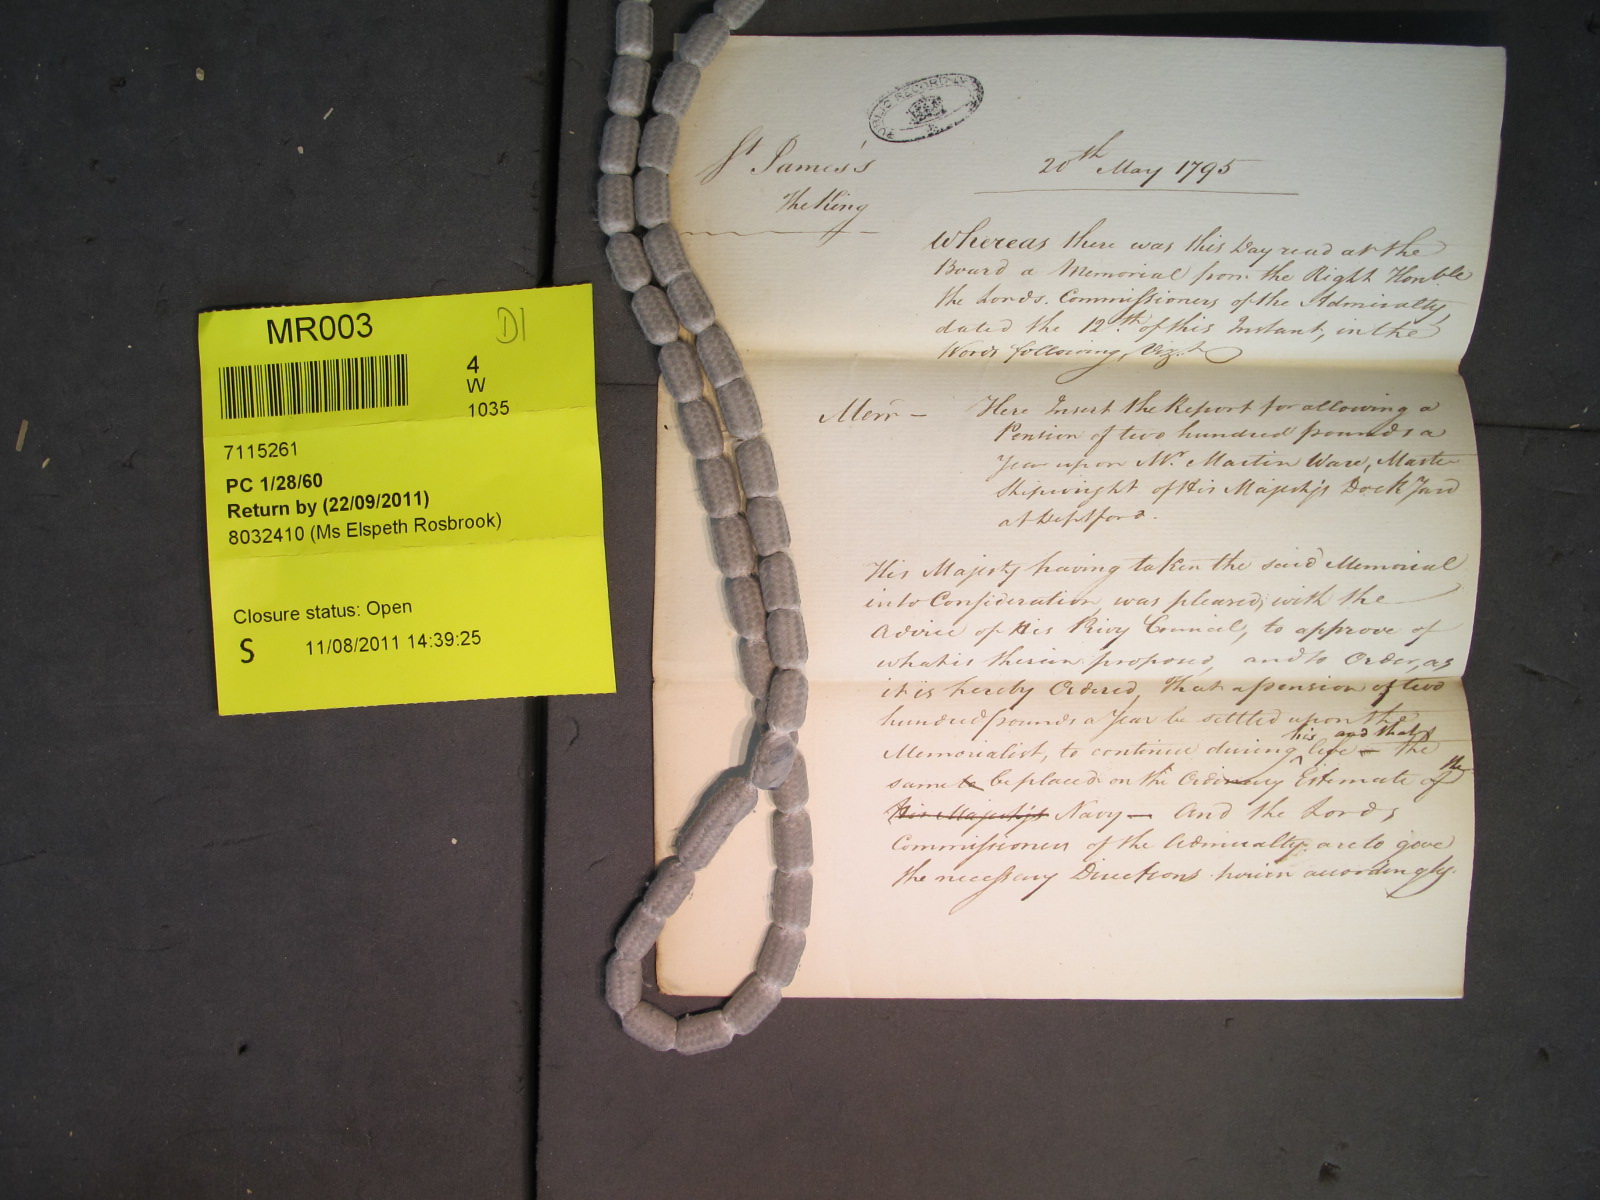 PUBLIC RECORD
St James's
20th May 1795
The King
Whereas there was this Day read at the
Board a Memorial from the Right Honble
the Lords Commissioners of the Admiralty,
dated the 12th of this Instant, in the
Words following, Vizt
Mem —
Here Insert the Report for allowing a
Pension of two hundred pounds a
Year upon Mr. Martin Ware, Master
Shipwright of His Majesty's Dock Yard
at Deptford.
His Majesty having taken the said Memorial
into Consideration, was pleased, with the
Advice of His Privy Council, to approve of
what is therein proposed, and to Order, as
it is hereby Ordered, That a pension of two
hundred pounds a Year be settled upon the
Memorialist, to continue during his life — and that the
same to be placed on the Ordinary Estimate of the
His Majesty's Navy — And the Lords
Commissioners of the Admiralty are to give
the necessary Directions herein accordingly.
MR003
D1
4
W
1035
7115261
PC 1/28/60
Return by (22/09/2011)
8032410 (Ms Elspeth Rosbrook)
Closure status: Open
S 11/08/2011 14:39:25